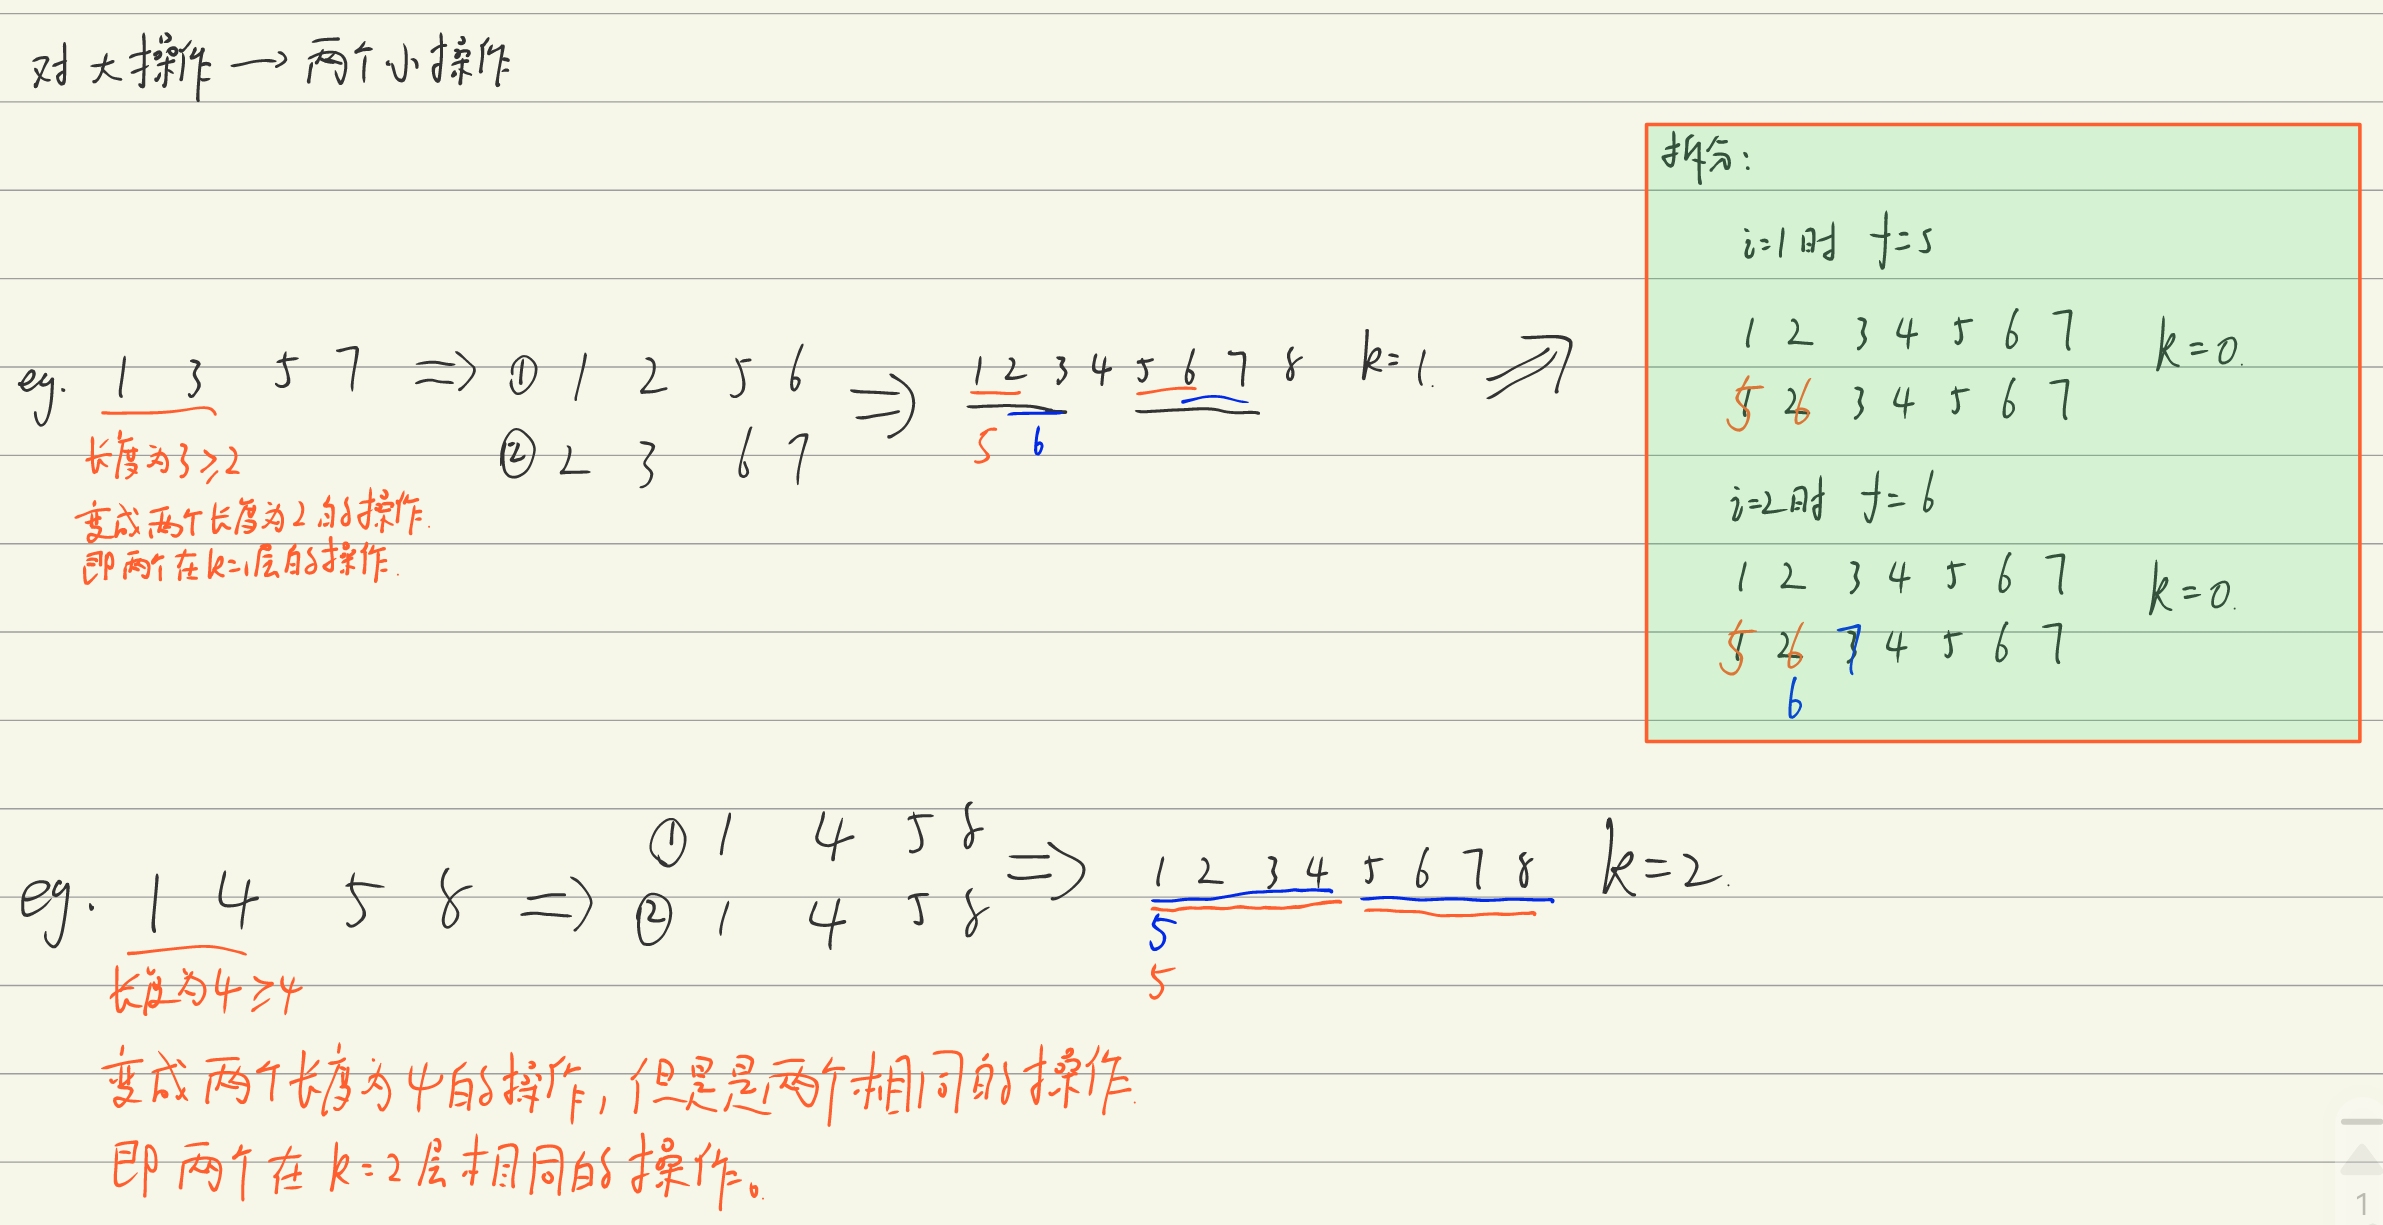 对大操作→两个小操作
eg. 1 3 5 7 ⇒ ① 1 2 5 6 ⇒ 1 2 3 4 5 6 7 8 k=1. ⇒
② 2 3 6 7
5 6
长度为3≥2
变成两个长度为2的操作.
即两个在k=1层的操作.
拆分:
i=1时 f=5
1 2 3 4 5 6 7 k=0.
5 6 3 4 5 6 7
i=2时 f=6
1 2 3 4 5 6 7 k=0.
5 6 7 4 5 6 7
6
eg. 1 4 5 8 ⇒ ① 1 4 5 8 ⇒ 1 2 3 4 5 6 7 8 k=2.
② 1 4 5 8
5
5
长度为4≥4
变成两个长度为4的操作,但是是两个相同的操作.
即两个在k=2层相同的操作。
1